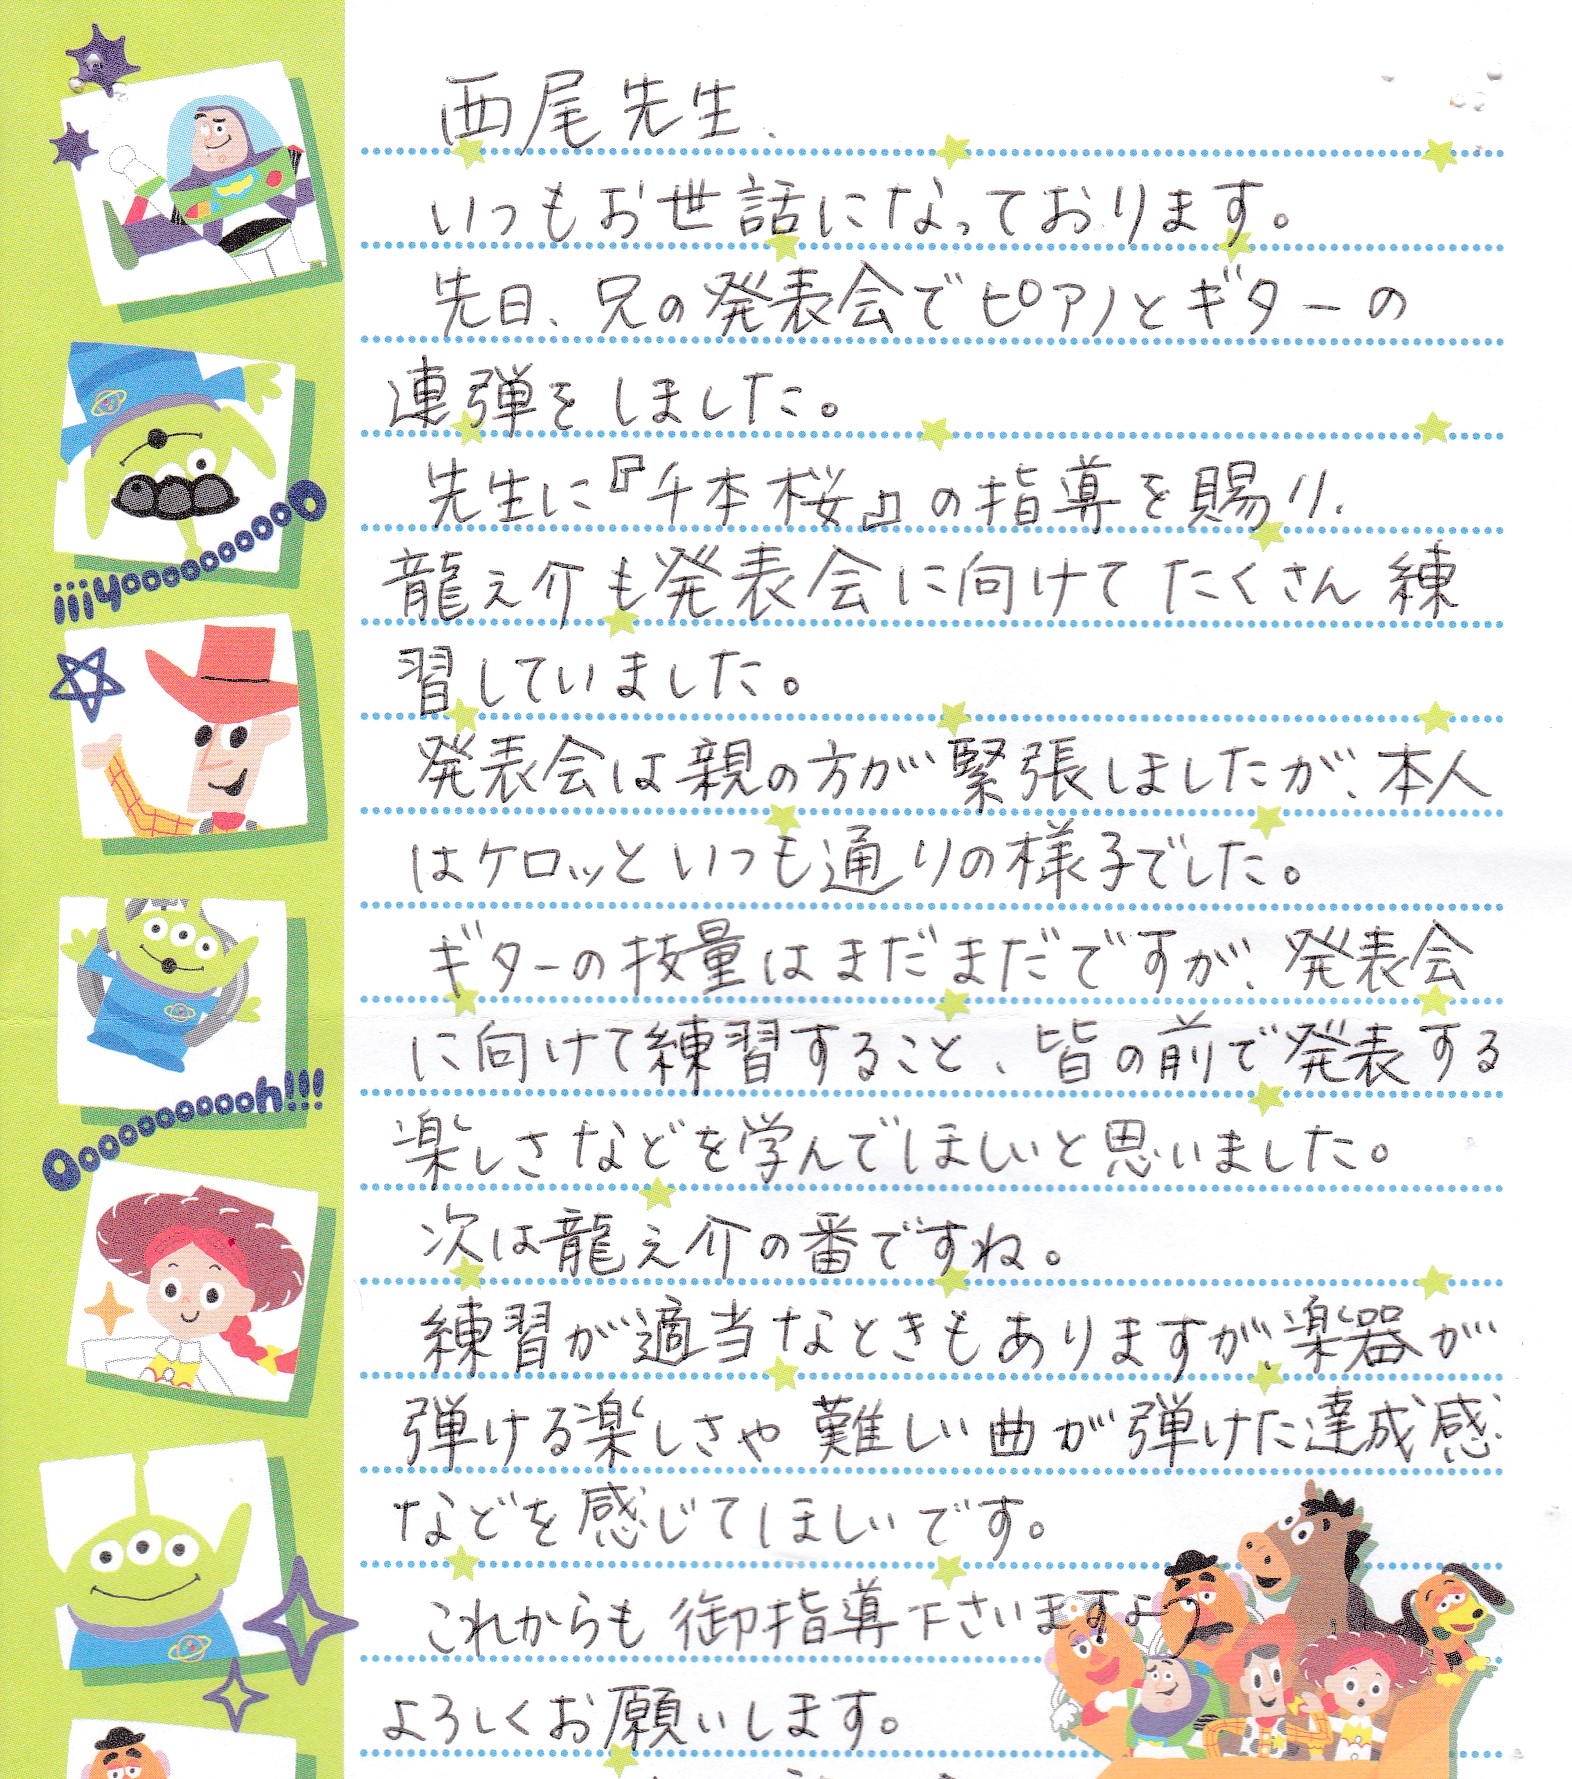 西尾先生、
いつもお世話になっております。
先日、兄の発表会でピアノとギターの
連弾をしました。
先生に『千本桜』の指導を賜り、
龍之介も発表会に向けてたくさん練
習していました。
発表会は親の方が緊張しましたが、本人
はケロッといつも通りの様子でした。
ギターの技量はまだまだですが、発表会
に向けて練習すること、皆の前で発表する
楽しさなどを学んでほしいと思いました。
次は龍之介の番ですね。
練習が適当なときもありますが、楽器が
弾ける楽しさや難しい曲が弾けた達成感
などを感じてほしいです。
これからも御指導下さいますよう
よろしくお願いします。
iiiyoooooooooo
Ooooooooooh!!!